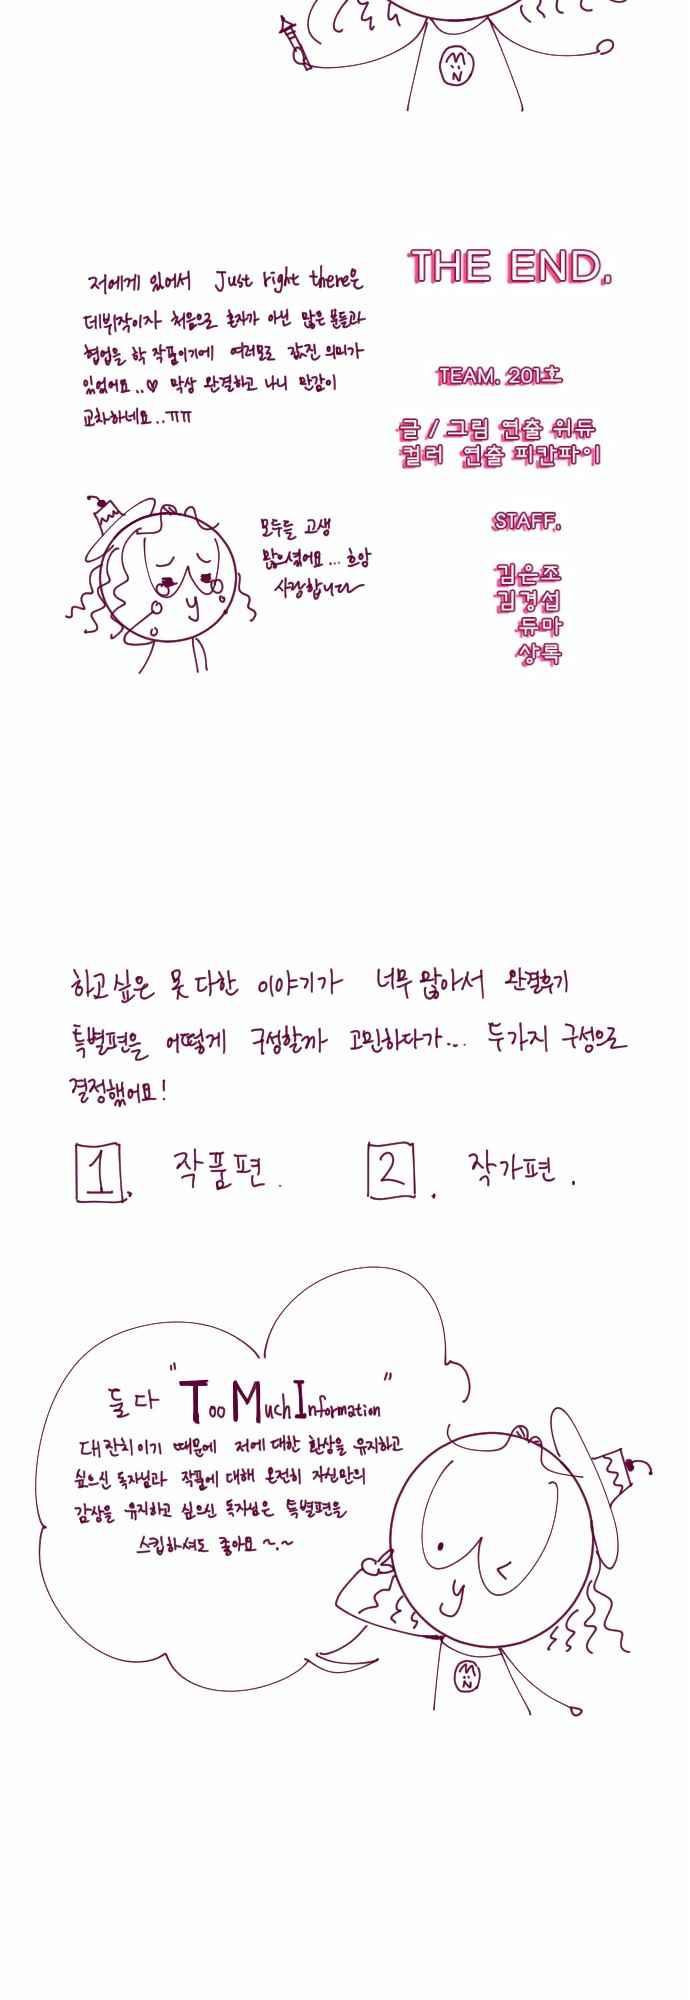 MN
저에게 있어서 Just right there은
데뷔작이자 처음으로 혼자가 아닌 많은 분들과
협업을 한 작품이기에 여러모로 값진 의미가
있었어요..♡ 막상 완결하고 나니 만감이
교차하네요..ㅠㅠ
THE END.
TEAM. 201호
글 / 그림 연출 위듀
컬러 연출 피칸파이
모두들 고생
많으셨어요... 흐앙
사랑합니다
STAFF.
김은조
김경섭
듀마
상록
하고 싶은 못 다한 이야기가 너무 많아서 완결후기
특별편을 어떻게 구성할까 고민하다가... 두가지 구성으로
결정했어요!
1. 작품편. 2. 작가편.
둘 다 "Too Much Information"
대잔치이기 때문에 저에 대한 환상을 유지하고
싶으신 독자님과 작품에 대해 온전히 자신만의
감상을 유지하고 싶으신 독자님은 특별편을
스킵하셔도 좋아요 ~.~
MN